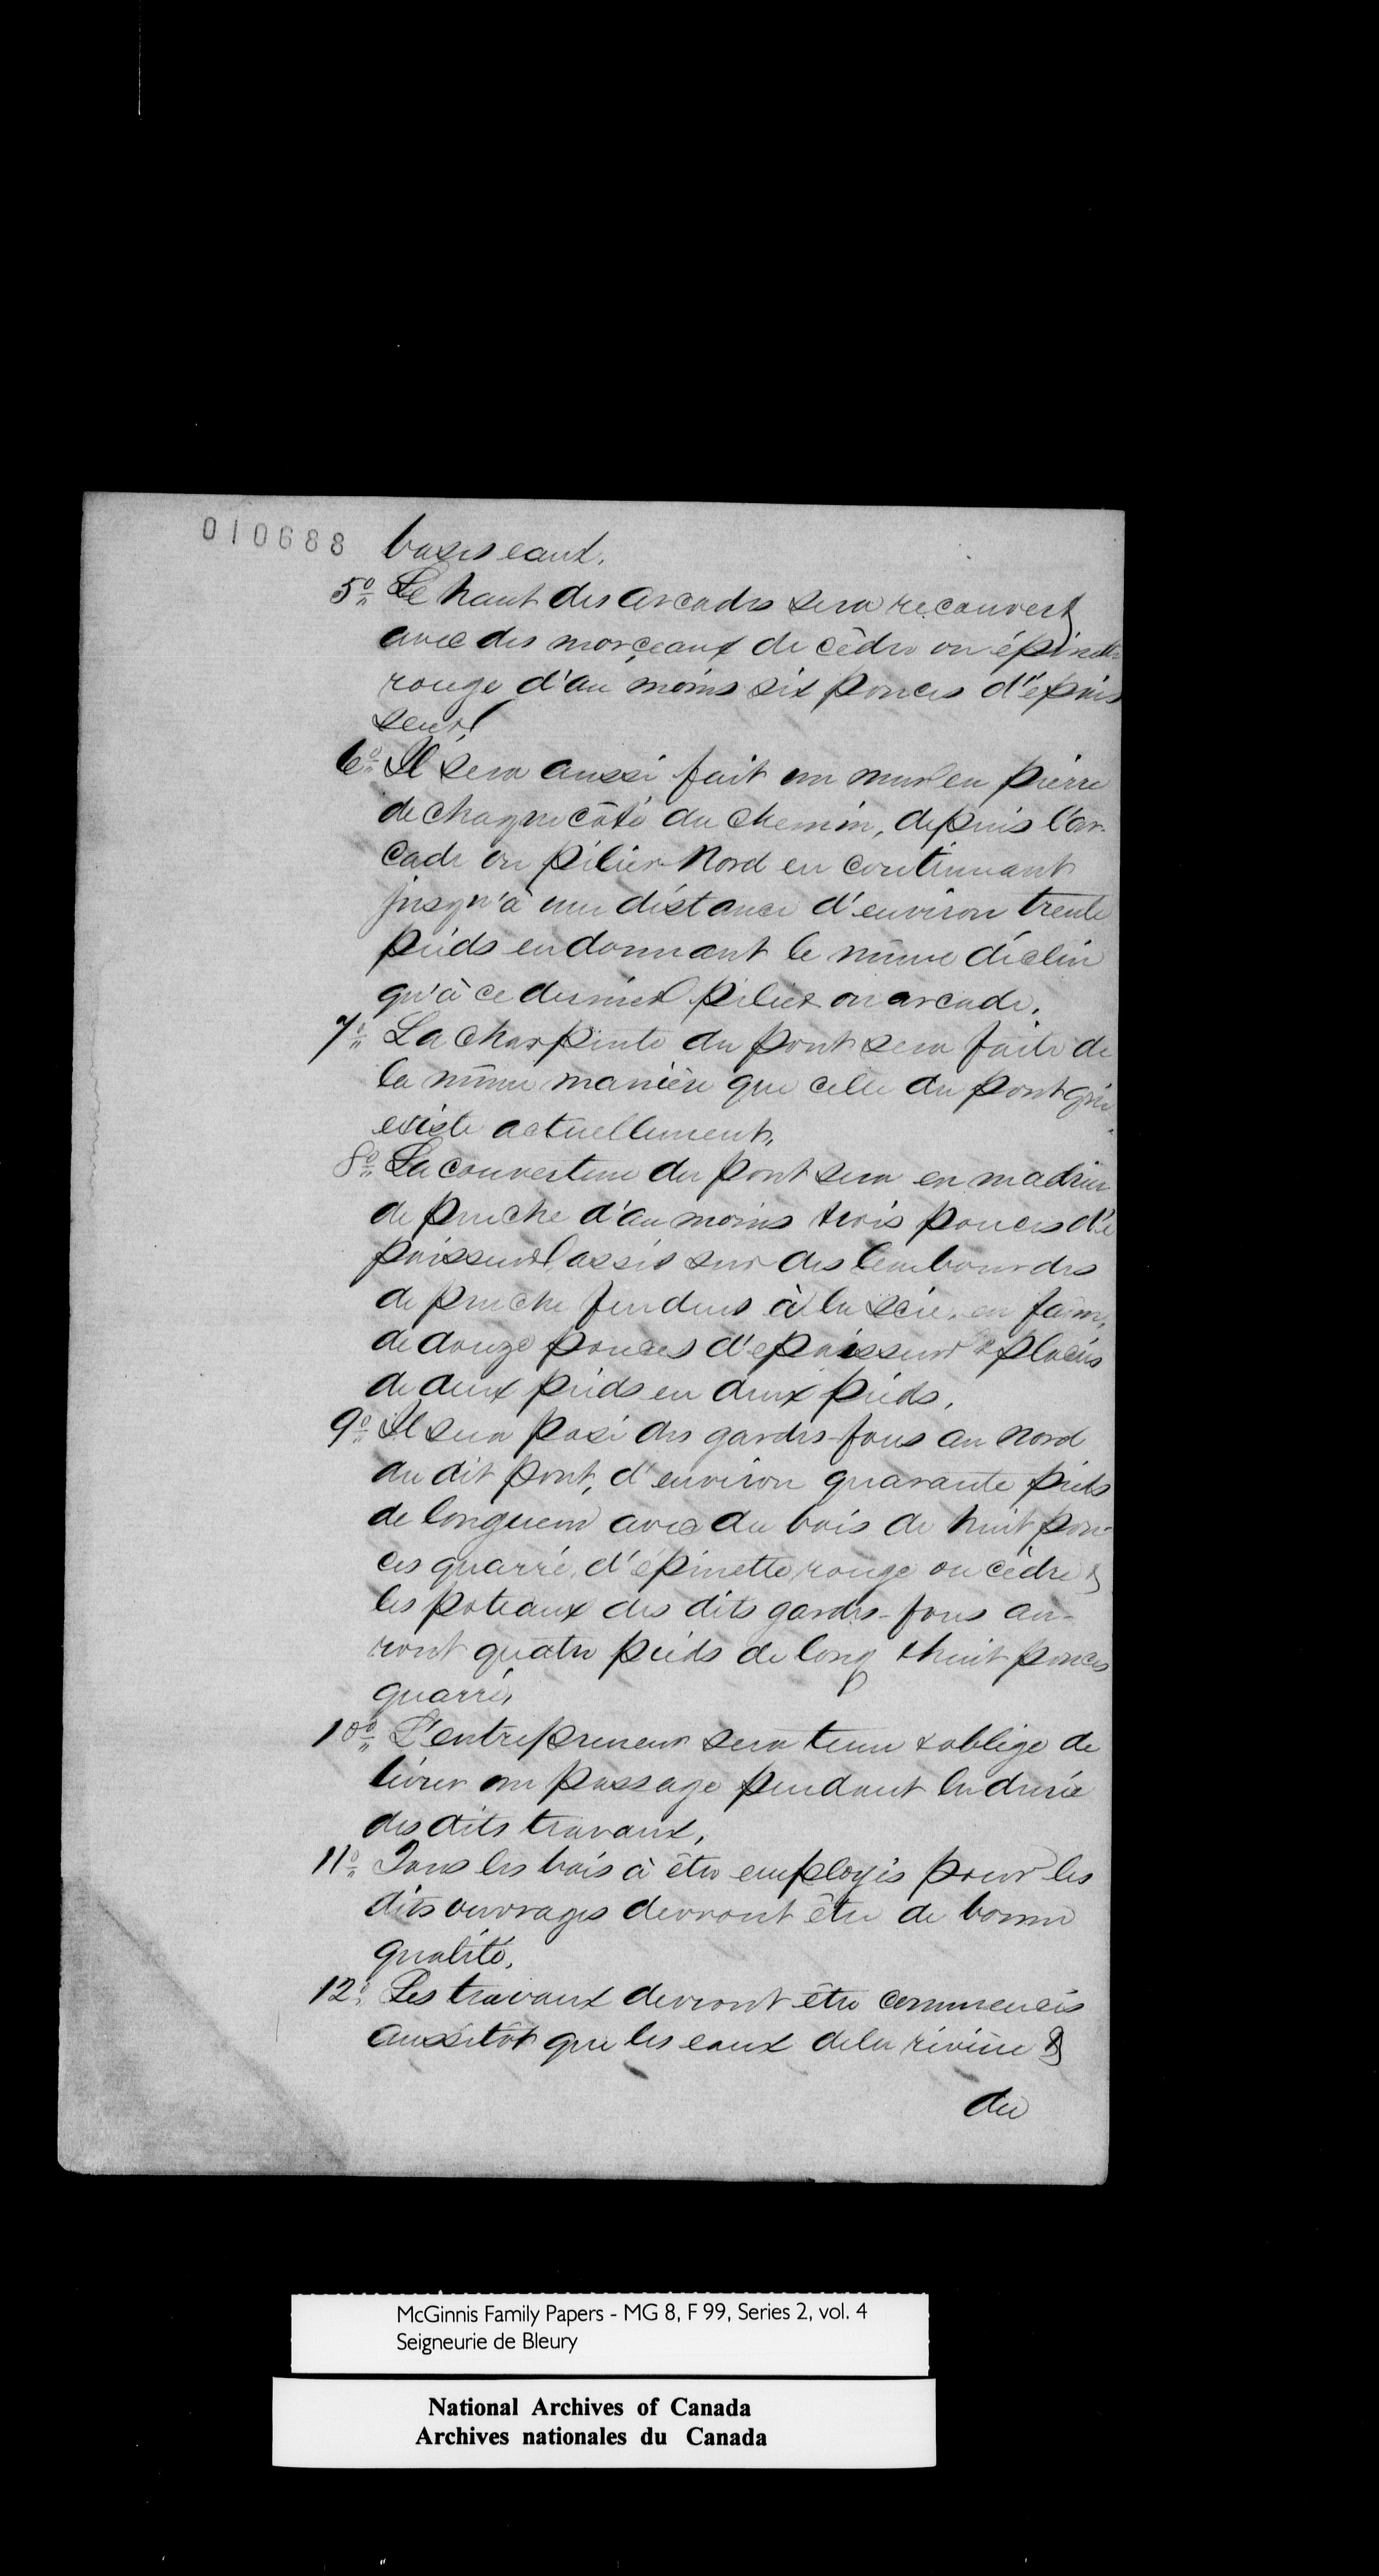 010688
basses eaux.
5o Le haut des arcades sera recouvert
avec des morçeaux de cèdre ou épinette
rouge d'au moins six pouces d'épais
seur.
6o Il sera aussi fait un mur en pierre
de chaque côté du chemin, depuis l'ar-
cade ou pilier Nord en continuant
jusqu'à une distance d'environ trente
pieds en donnant le même déclin
qu'à ce dernier pilier ou arcade.
7o La charpente du pont sera faite de
la même manière que celle du pont qui
existe actuellement.
8o La couverture du pont sera en madrier
de pruche d'au moins trois pouces d'é
paisseur assis sur des lembourdes
de pruche fendues à la scie, en
de douze pouces d'epaisseur & placées
de deux pieds en deux pieds.
9o Il sera posé des gardes-fous au nord
du dit pont, d'environ quarante pieds
de longueur avec du bois de huit pou-
ces quarré, d'épinette rouge ou cèdre &
les poteaux des dits gardes-fous au-
ront quatre pieds de long & huit pouces
quarré,
10o L'entrepreneur sera tenu & obligé de
livrer un passage pendant la durée
des dits travaux,
11o Tous les bois à être employés pour les
dits ouvrages devront être de bonne
qualité.
12o Les travaux devront être commencés
aussitôt que les eaux de la rivière &
du
McGinnis Family Papers - MG 8, F 99, Series 2, vol. 4
Seigneurie de Bleury
National Archives of Canada
Archives nationales du Canada